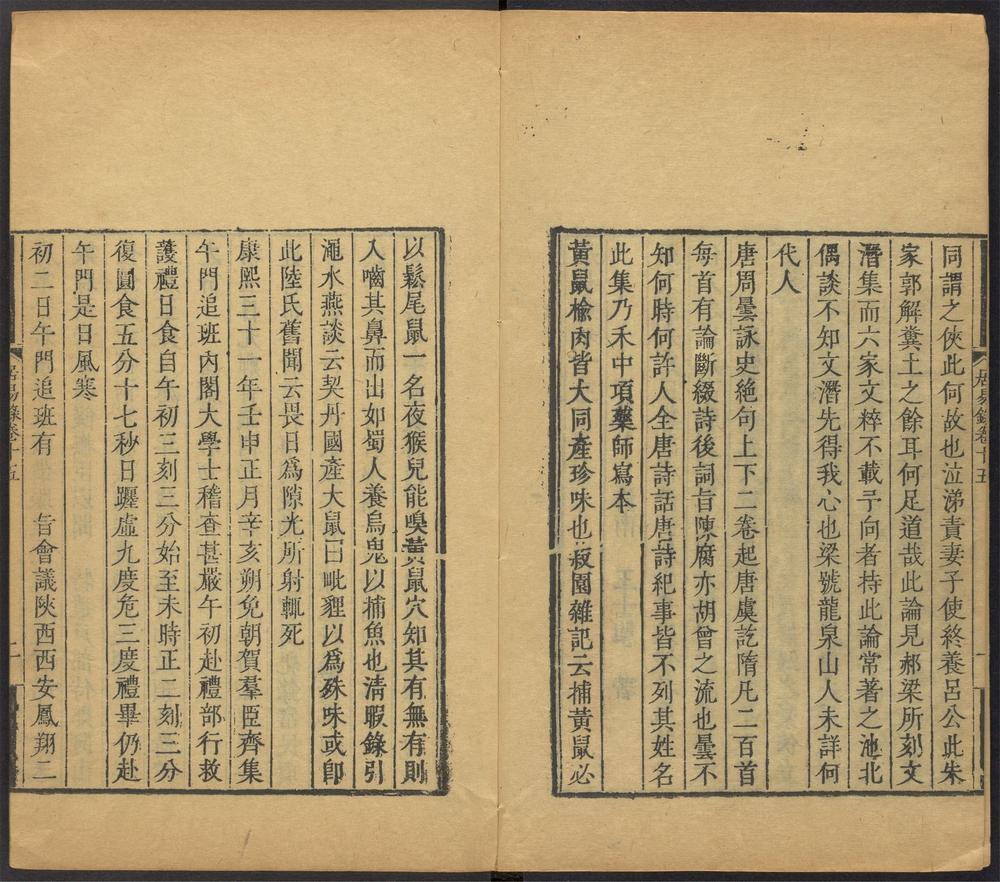 居易錄卷十五
同謂之俠此何故也泣涕責妻子使終養呂公此朱
家郭解糞土之餘耳何足道哉此論見郝梁所刻文
潛集而六家文粹不載予向者持此論常著之池北
偶談不知文潛先得我心也梁號龍泉山人未詳何
代人
唐周曇詠史絕句上下二卷起唐虞訖隋凡二百首
每首有論斷綴詩後詞旨陳腐亦胡曾之流也曇不
知何時何許人全唐詩話唐詩紀事皆不列其姓名
此集乃禾中項藥師寫本
黃鼠楡肉皆大同產珍味也菽園雜記云捕黃鼠必
以鬆尾鼠一名夜猴兒能嗅黃鼠穴知其有無有則
入嚙其鼻而出如蜀人養烏鬼以捕魚也淸暇錄引
澠水燕談云契丹國產大鼠曰毗貍以爲殊味或卽
此陸氏舊聞云畏日爲隙光所射輒死
康熙三十一年壬申正月辛亥朔免朝賀羣臣齊集
午門追班內閣大學士稽查甚嚴午初赴禮部行救
護禮日食自午初三刻三分始至未時正二刻三分
復圓食五分十七秒日躔虛九度危三度禮畢仍赴
午門是日風寒
初二日午門追班有　旨會議陝西西安鳳翔二
居易錄卷十五
二